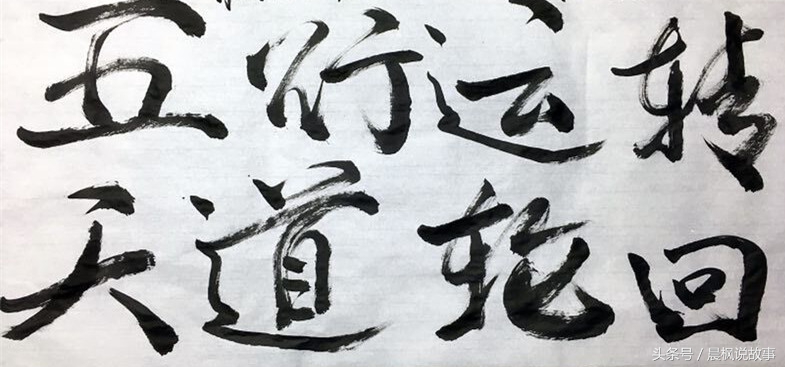 五行运转
天道轮回
头条号／晨枫说故事